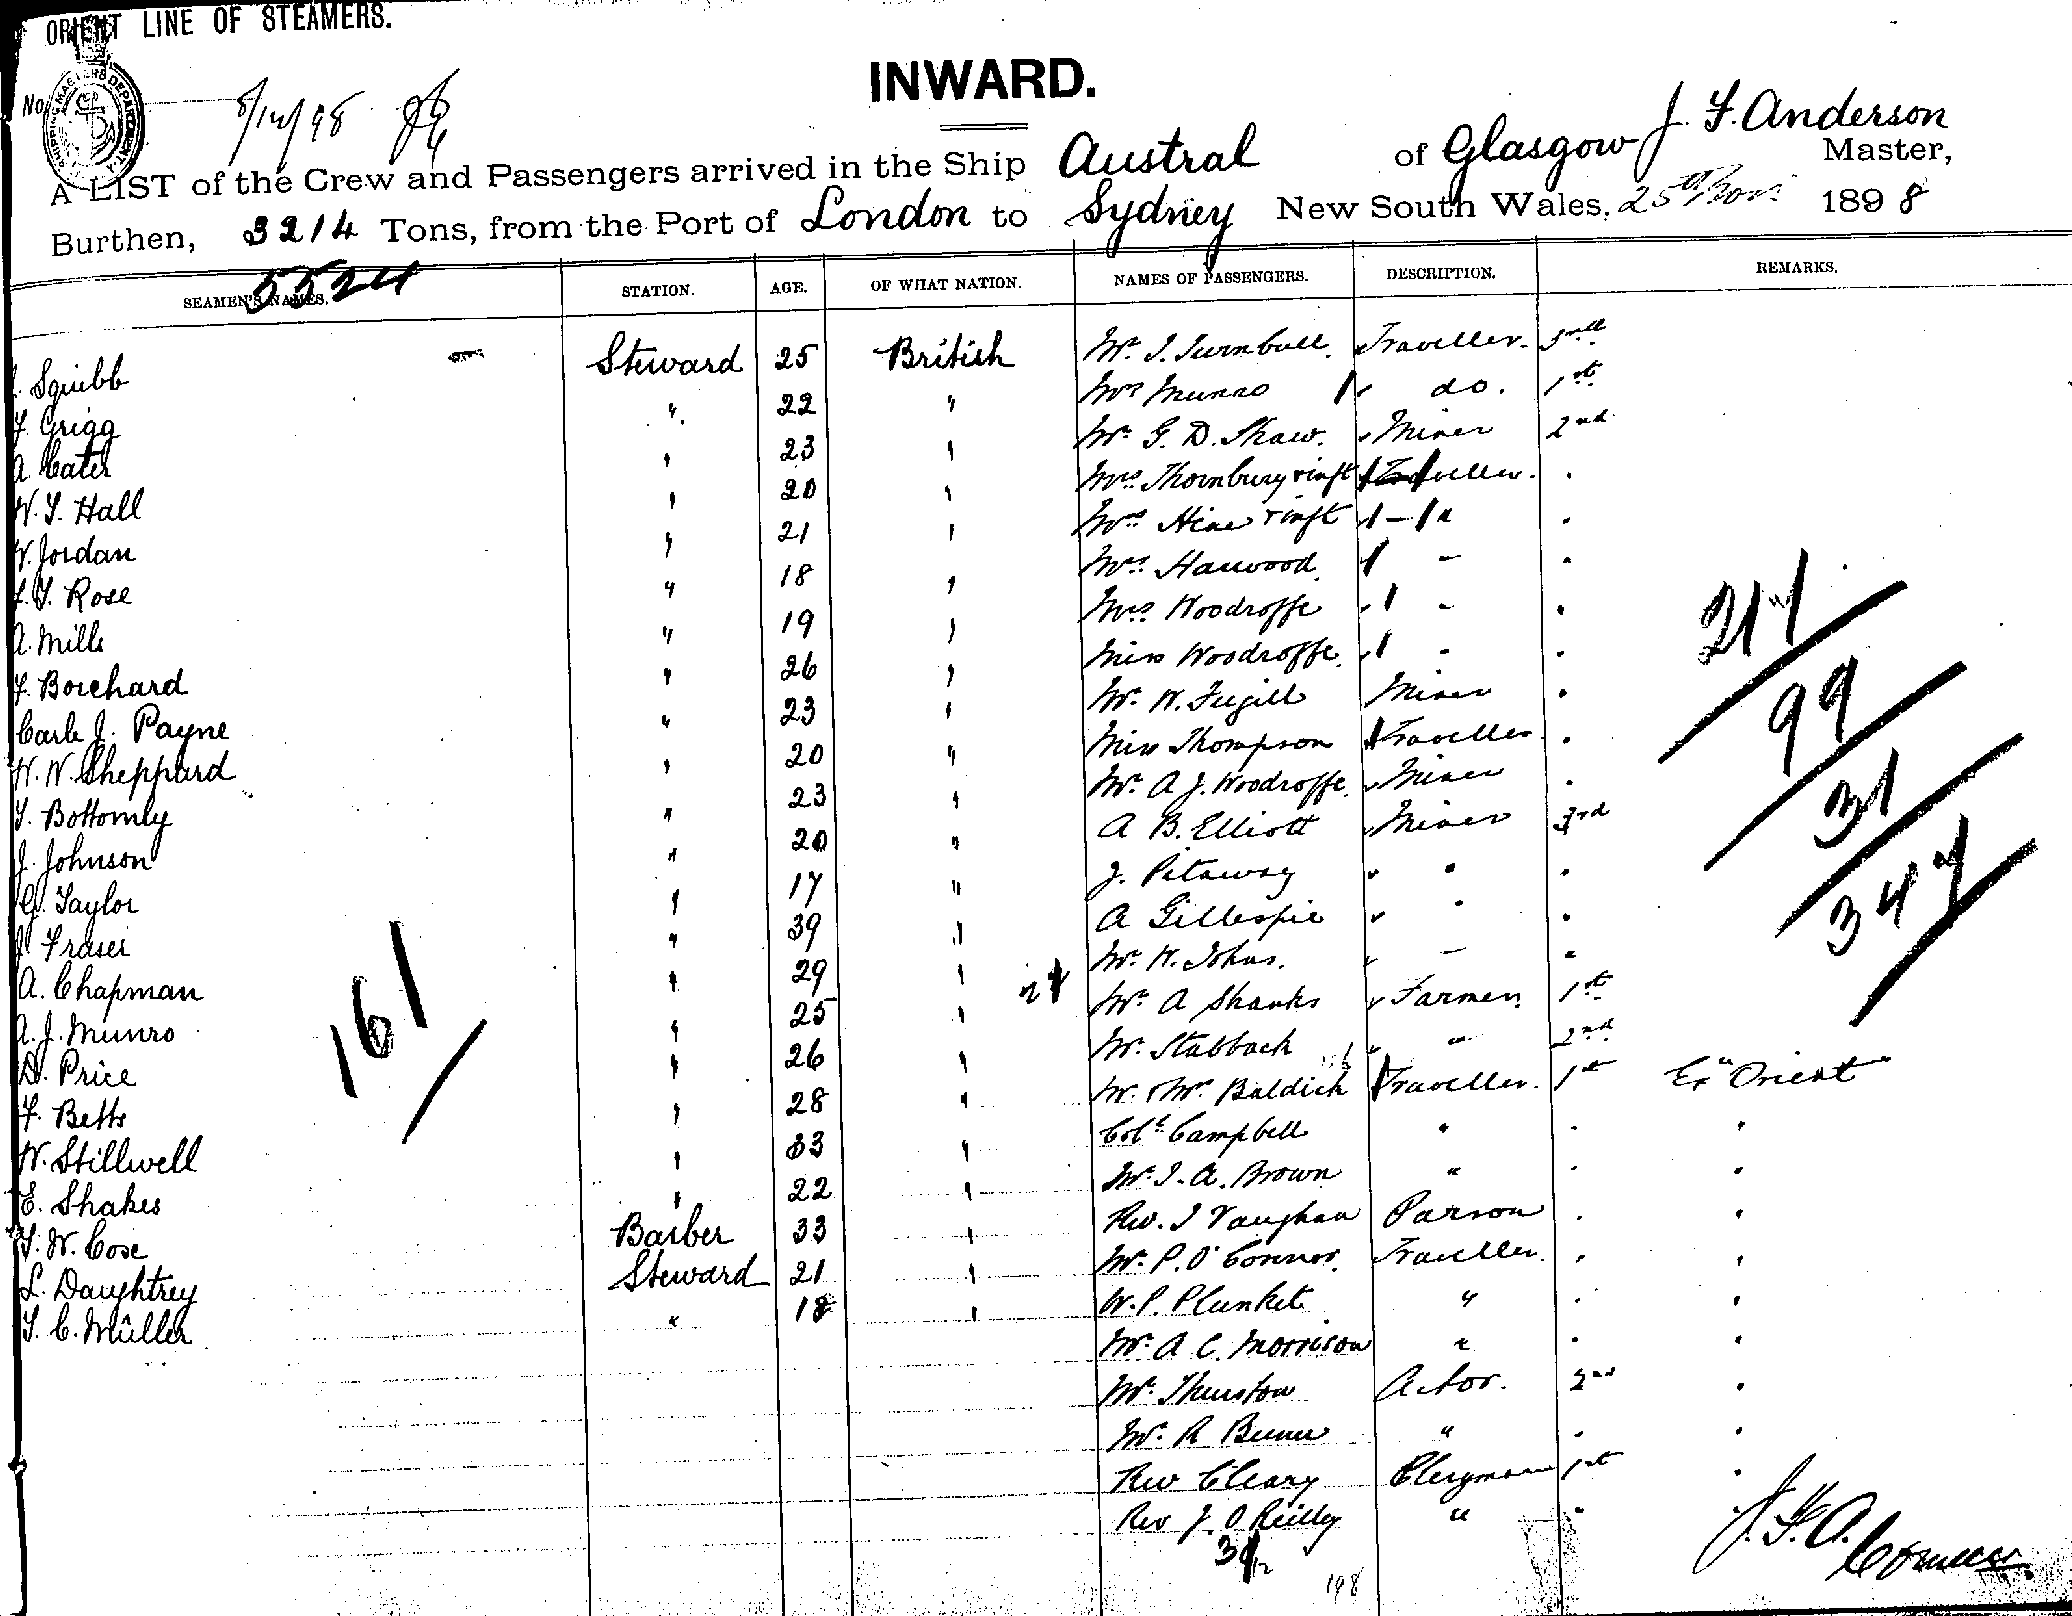 ORIENT LINE OF STEAMERS.
INWARD.
No.
J. F. Anderson
A LIST of the Crew and Passengers arrived in the Ship Austral of Glasgow Master,
Burthen, 3214 Tons, from the Port of London to Sydney New South Wales, 25th Nov. 1898
5524
SEAMEN'S NAMES. STATION. AGE. OF WHAT NATION. NAMES OF PASSENGERS. DESCRIPTION. REMARKS.
Squibb Steward 25 British Mr. J. Turnbull. Traveller. 3rd
F. Grigg " 22 " Mrs Munro do. 1st
A. Cater " 23 " Mr. G. D. Shaw. Miner 2nd
W. T. Hall " 20 " Mrs. Thornbury & inft Traveller. "
W. Jordan " 21 " Mrs Hine & inft " "
T. Rose " 18 " Mrs. Harwood " "
A. Mills " 19 " Mrs Woodroffe " "
F. Borchard " 26 " Miss Woodroffe " "
Carl J. Payne " 23 " Mr. W. Miner "
W. W. Sheppard " 20 " Miss Thompson Traveller "
T. Bottomly " 23 " Mr. A. J. Woodroffe. Miner "
J. Johnson " 20 " A B. Elliott Miner 3rd
G. Taylor " 17 " J. Pitaway " "
J. Fraser " 39 " A Gillespie " "
A. Chapman " 29 " Mr. W. Johns. " "
A. J. Munro " 25 " Mr. A Shanks Farmer 1st
D. Price " 26 " Mr. Stabback " 2nd
F. Betts " 28 " Mr. & Mrs. Baldick Traveller. 1st Ex "Orient"
W. Stillwell " 33 " Col. Campbell " " "
E. Shakes " 22 " Mr. J. A. Brown " " "
T. W. Cose Barber 33 " Rev. J Vaughan Parson " "
L. Daughtrey Steward 21 " Mr. P. O'Connor. Traveller. " "
T. C. Müller " 18 " W. P. Plunket " " "
Mr. A C. Morrison " " "
Mr. Thurston Actor. 2nd "
Mr. R " " "
Rev Cleary Clergyman 1st "
Rev J. O Reilly " "
161
217
99
31
347
198
J. F. A.